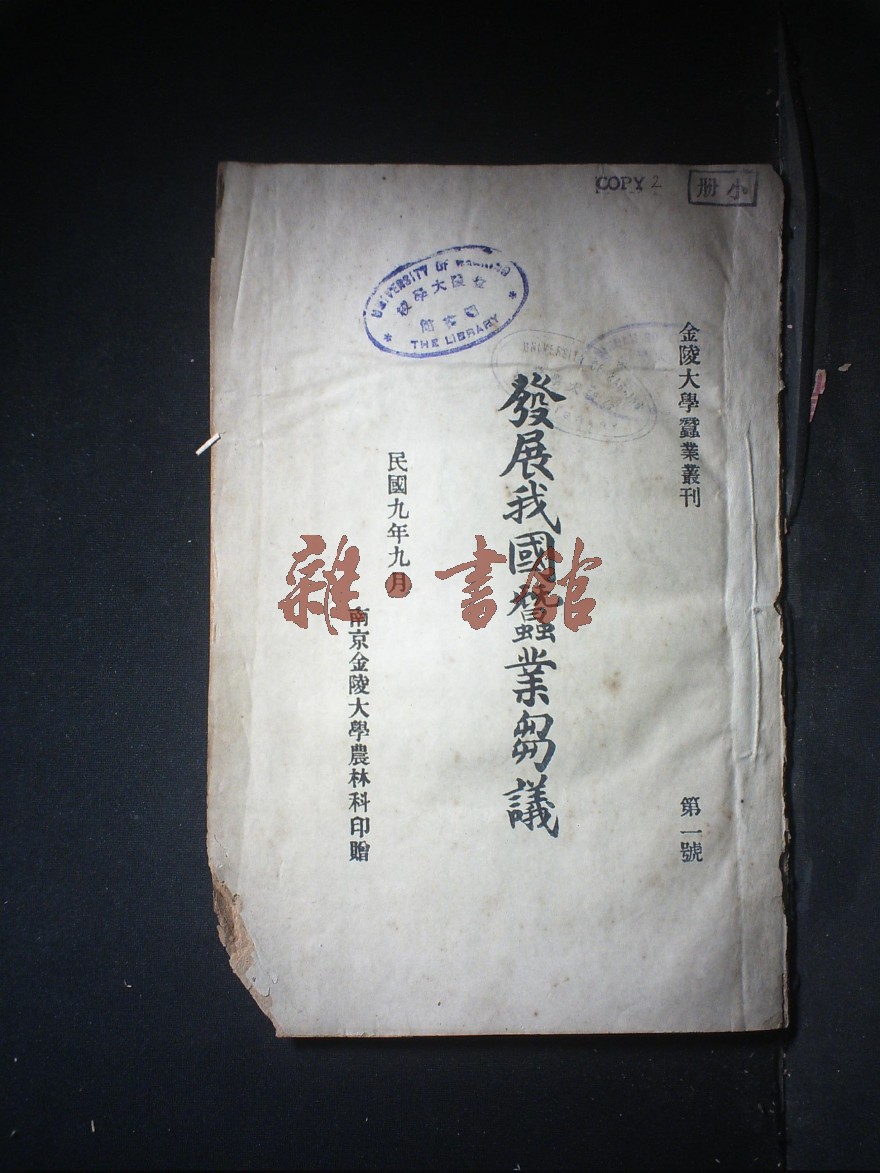 COPY 2
小册
金陵大學蠶業叢刊
第一號
發展我國蠶業芻議
民國九年九月
南京金陵大學農林科印贈
UNIVERSITY OF NANKING
金陵大學校
圖書館
THE LIBRARY
UNIVERSITY OF
雜·書館